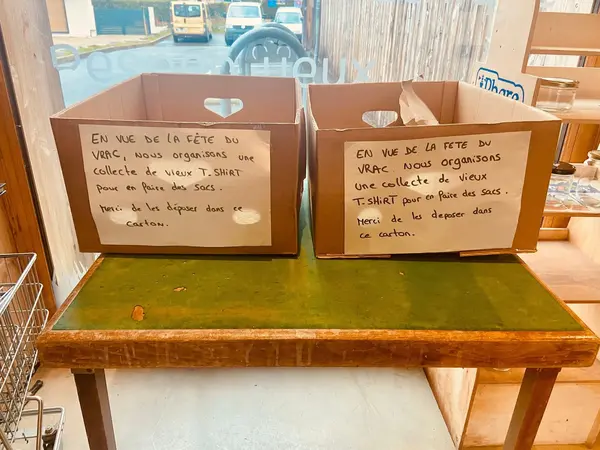 EN VUE DE LA FÊTE DU
VRAC, NOUS ORGANISONS UNE
COLLECTE DE VIEUX T.SHIRT
POUR EN FAIRE DES SACS.
MERCI DE LES DÉPOSER DANS CE
CARTON.
EN VUE DE LA FETE DU
VRAC NOUS ORGANISONS
UNE COLLECTE DE VIEUX
T.SHIRT POUR EN FAIRE DES SACS.
MERCI DE LES DEPOSER DANS
CE CARTON.